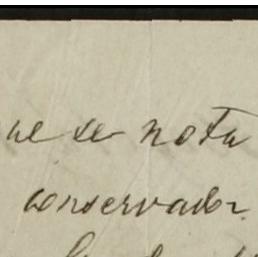 ue se nota
conservador